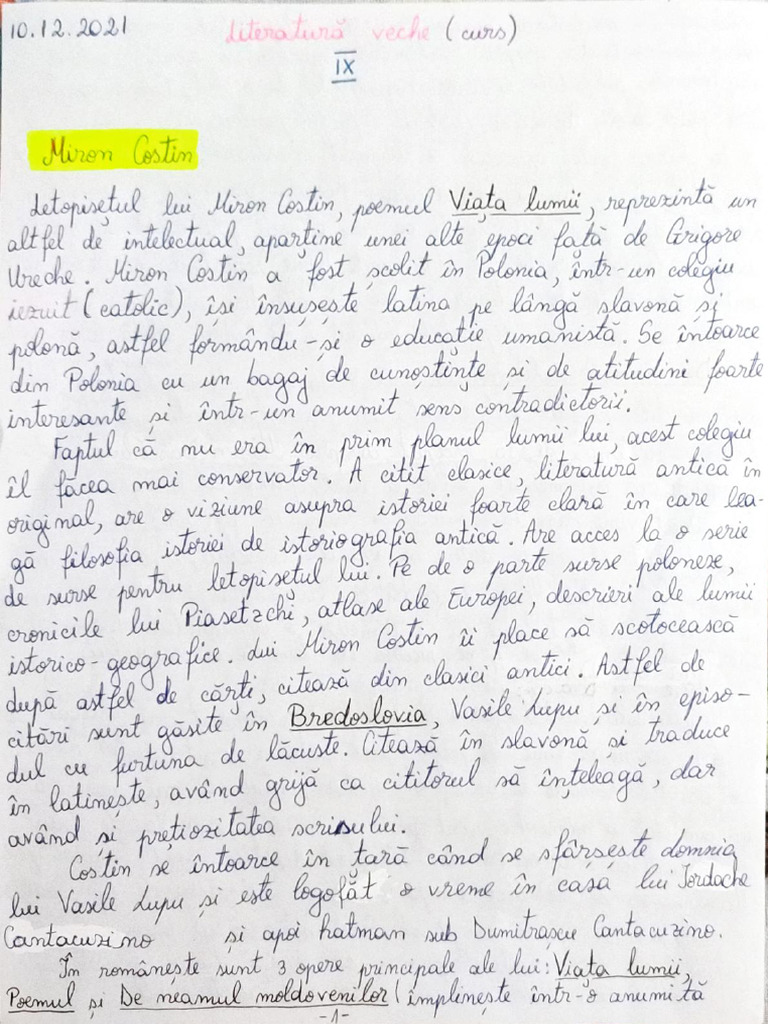 10.12.2021
Literatură veche (curs)
IX
Miron Costin
Letopisețul lui Miron Costin, poemul Viața lumii, reprezintă un
altfel de intelectual, aparține unei alte epoci față de Grigore
Ureche. Miron Costin a fost școlit în Polonia, într-un colegiu
iezuit (catolic), își însușește latina pe lângă slavonă și
polonă, astfel formându-și o educație umanistă. Se întoarce
din Polonia cu un bagaj de cunoștințe și de atitudini foarte
interesante și într-un anumit sens contradictorii.
Faptul că nu era în prim planul lumii lui, acest colegiu
îl făcea mai conservator. A citit clasice, literatură antică în
original, are o viziune asupra istoriei foarte clară în care lea-
gă filosofia istoriei de istoriografia antică. Are acces la o serie
de surse pentru letopisețul lui. Pe de o parte surse poloneze,
cronicile lui Piasetzchi, atlase ale Europei, descrieri ale lumii
istorico-geografice. Lui Miron Costin îi place să scotocească
după astfel de cărți, citează din clasici antici. Astfel de
citări sunt găsite în Bredoslovia, Vasile Lupu și în episo-
dul cu furtuna de lăcuste. Citează în slavonă și traduce
în latinește, având grijă ca cititorul să înțeleagă, dar
având și prețiozitatea scrisului.
Costin se întoarce în țară când se sfârșește domnia
lui Vasile Lupu și este logofăt o vreme în casa lui Iordache
Cantacuzino și apoi hatman sub Dumitrașcu Cantacuzino.
În românește sunt 3 opere principale ale lui: Viața lumii,
Poemul și De neamul moldovenilor (împlinește într-o anumită
-1-